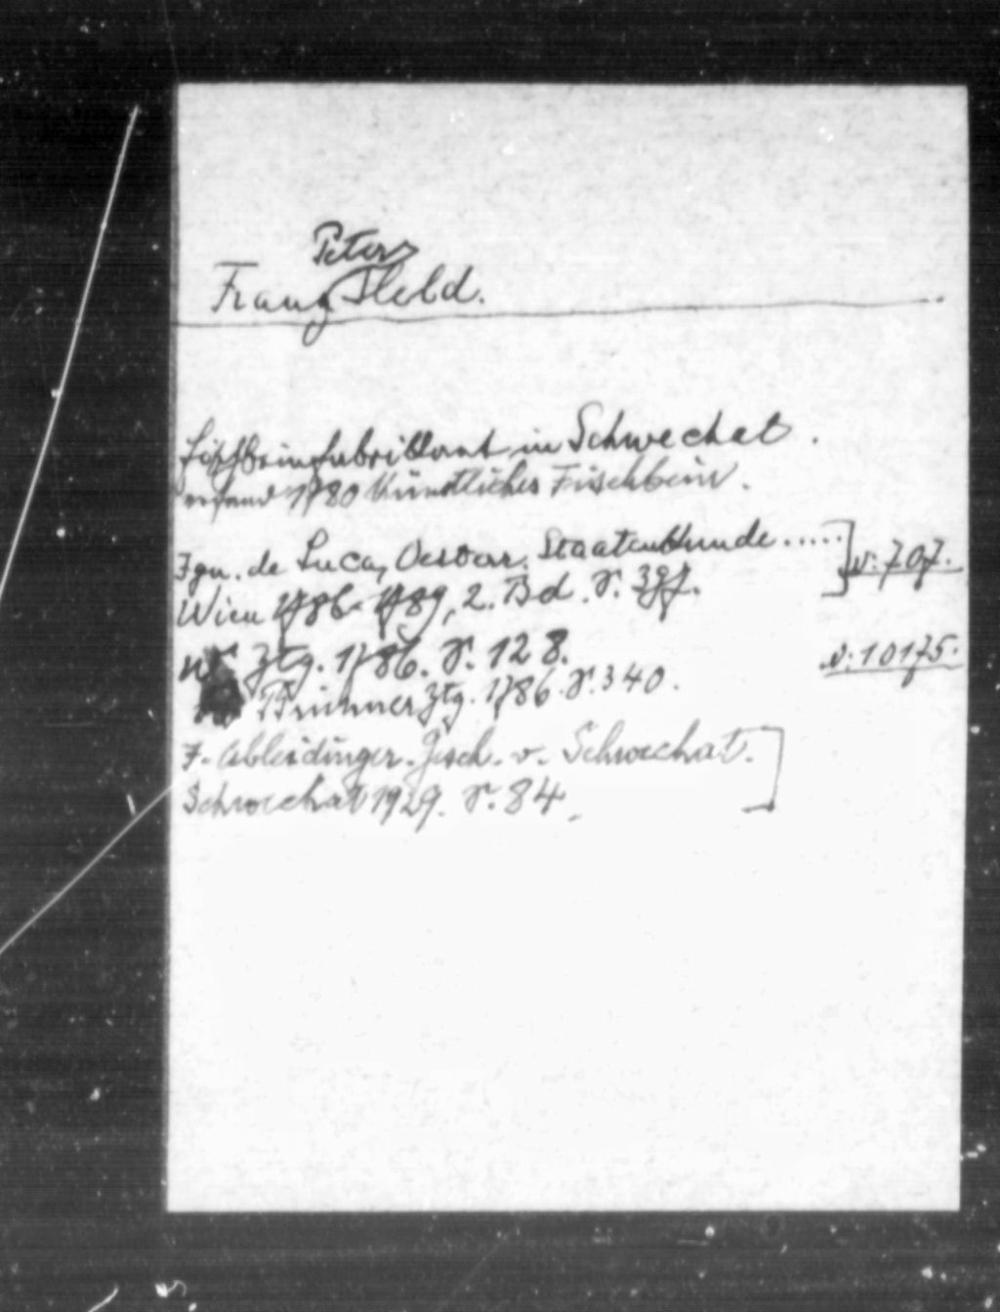 Peter
Franz Held.
Fischbeinfabrikant in Schwechat.
erfand 1780 künstliches Fischbein.
Ign. de Luca, Oesterr. Staatenkunde.....] N: 707.
Wien 1786-1789, 2. Bd. S. 397.
Wr. Ztg. 1786. S. 128. N: 10175.
Brünner Ztg. 1786. S. 340.
F. Ableidinger. Gesch. v. Schwechat.]
Schwechat 1929. S. 84.